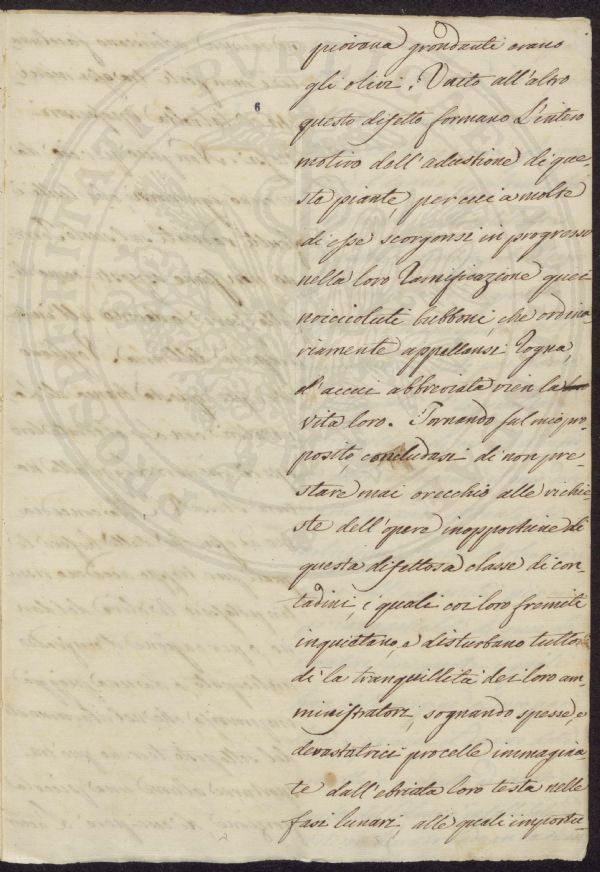 piovana grondanti erano
gli olivi. Unito all'altro
questo difetto formano l'intero
motivo dell'adustione di que-
ste piante, per cui a molte
di esse scorgonsi in progresso
nella loro Ramificazione quei
noicioluti bubboni, che ordina-
riamente appellansi Rogna,
d'accui abbreviata vien la
vita loro. Tornando sul mio pro-
posito, concludasi di non pre-
stare mai orecchio alle richie-
ste dell'opere inopportune di
questa difettosa classe di con-
tadini, i quali coi loro fremiti
inquietano, e disturbano tutto
dì la tranquillità dei loro am-
ministratori, sognando spesse, e
devastatrici procelle immagina-
te dall'ebriata loro testa nelle
fasi lunari, alle quali importu-
6